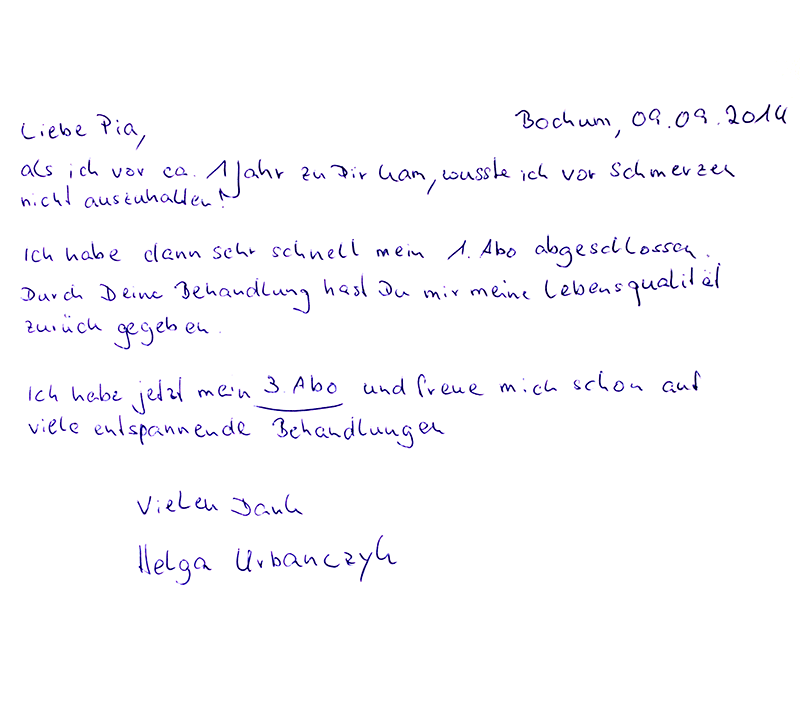 Bochum, 09.09.2014
Liebe Pia,
als ich vor ca. 1 Jahr zu Dir kam, wusste ich vor Schmerzen
nicht auszuhalten!
Ich habe dann sehr schnell mein 1. Abo abgeschlossen.
Durch Deine Behandlung hast Du mir meine Lebensqualität
zurück gegeben.
Ich habe jetzt mein 3. Abo und freue mich schon auf
viele entspannende Behandlungen
Vielen Dank
Helga Urbanczyk